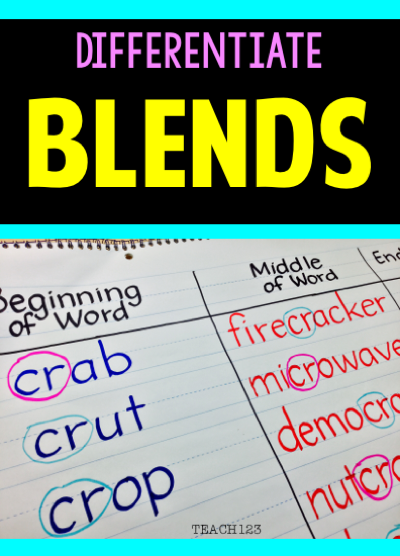 DIFFERENTIATE
BLENDS
Beginning
of Word
crab
crut
crop
Middle
of Word
firecracker
microwave
democra
nutcra
End
TEACH123